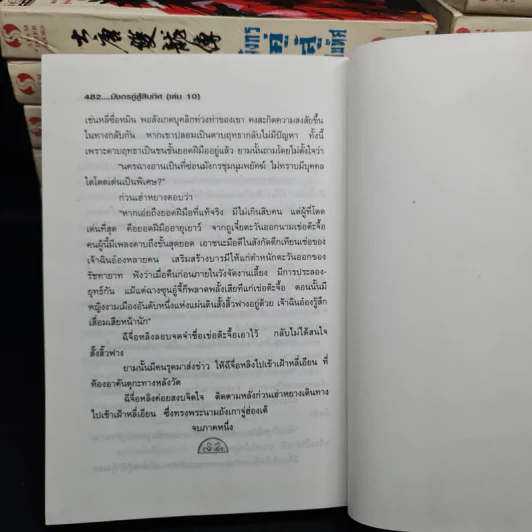 大唐雙龍傳
482....มังกรคู่สู้สิบทิศ (เล่ม 10)
เช่นหลี่ซื่อหมิน พอสังเกตบุคลิกท่วงท่าของเขา คงสะกิดความสงสัยขึ้น
ในทางกลับกัน หากเขาปลอมเป็นดาบฤทธากลับไม่มีปัญหา ทั้งนี้
เพราะดาบฤทธาเป็นชนชั้นยอดฝีมืออยู่แล้ว ยามนั้นถามโดยไม่ตั้งใจว่า
"นครฉางอานเป็นที่ซ่อนมังกรชุมนุมพยัคฆ์ ไม่ทราบมีบุคคล
ใดโดดเด่นเป็นพิเศษ?"
ก่วนเฮ่าหยางตอบว่า
"หากเอ่ยถึงยอดฝีมือที่แท้จริง มีไม่เกินสิบคน แต่ผู้ที่โดด
เด่นที่สุด คือยอดฝีมืออายุเยาว์ จากถูเจี๋ยตะวันออกนามเข่อต๊ะจื้อ
คนผู้นี้มีเพลงดาบถึงขั้นสุดยอด เอาชนะมือดีในสังกัดตึกเทียนเช่อของ
เจ้าฉินอ๋องหลายคน เสริมสร้างบารมีให้แก่ตำหนักตะวันออกของ
รัชทายาท ฟังว่าเมื่อคืนก่อนภายในวังจัดงานเลี้ยง มีการประลอง-
ยุทธ์กัน แม้แต่ฉางซุนอู๋จี้ก็พลาดพลั้งเสียทีแก่เข่อต๊ะจื้อ ตอนนั้นมี
หญิงงามเมืองอันดับหนึ่งแห่งแผ่นดินสั้งสิ้วฟางอยู่ด้วย เจ้าฉินอ๋องรู้สึก
เสื่อมเสียหน้านัก"
ฉีจื่อหลิงลอบจดจำชื่อเข่อต๊ะจื้อเอาไว้ กลับไม่ได้สนใจ
สั้งสิ้วฟาง
ยามนั้นมีคนรุดมาส่งข่าว ให้ฉีจื่อหลิงไปเข้าเฝ้าหลี่เอียน ที่
ห้องยาคันตุกะทางหลังวัด
ฉีจื่อหลิงค่อยสงบจิตใจ ติดตามหลังก่วนเฮ่าหยางเดินทาง
ไปเข้าเฝ้าหลี่เอียน ซึ่งทรงพระนามถังเกาจู่ฮ่องเต้
จบภาคหนึ่ง